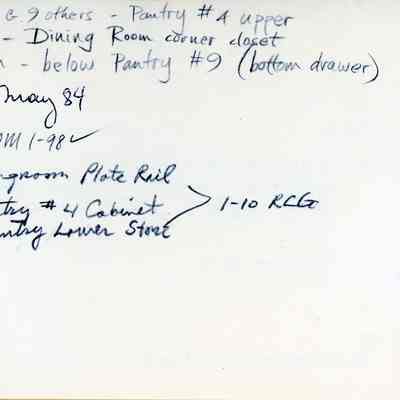 & 9 others - Pantry #4 upper
- Dining Room corner closet
- below Pantry #9 (bottom drawer)
May 84
1-98 ✓
ngroom Plate Rail
try #4 Cabinet
ntry Lower Store
1-10 RLG